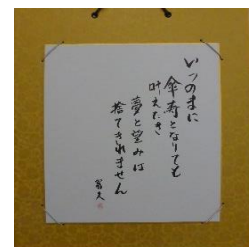 いつのまに
傘寿となりても
叶えたき
夢と望みは
捨てきれません